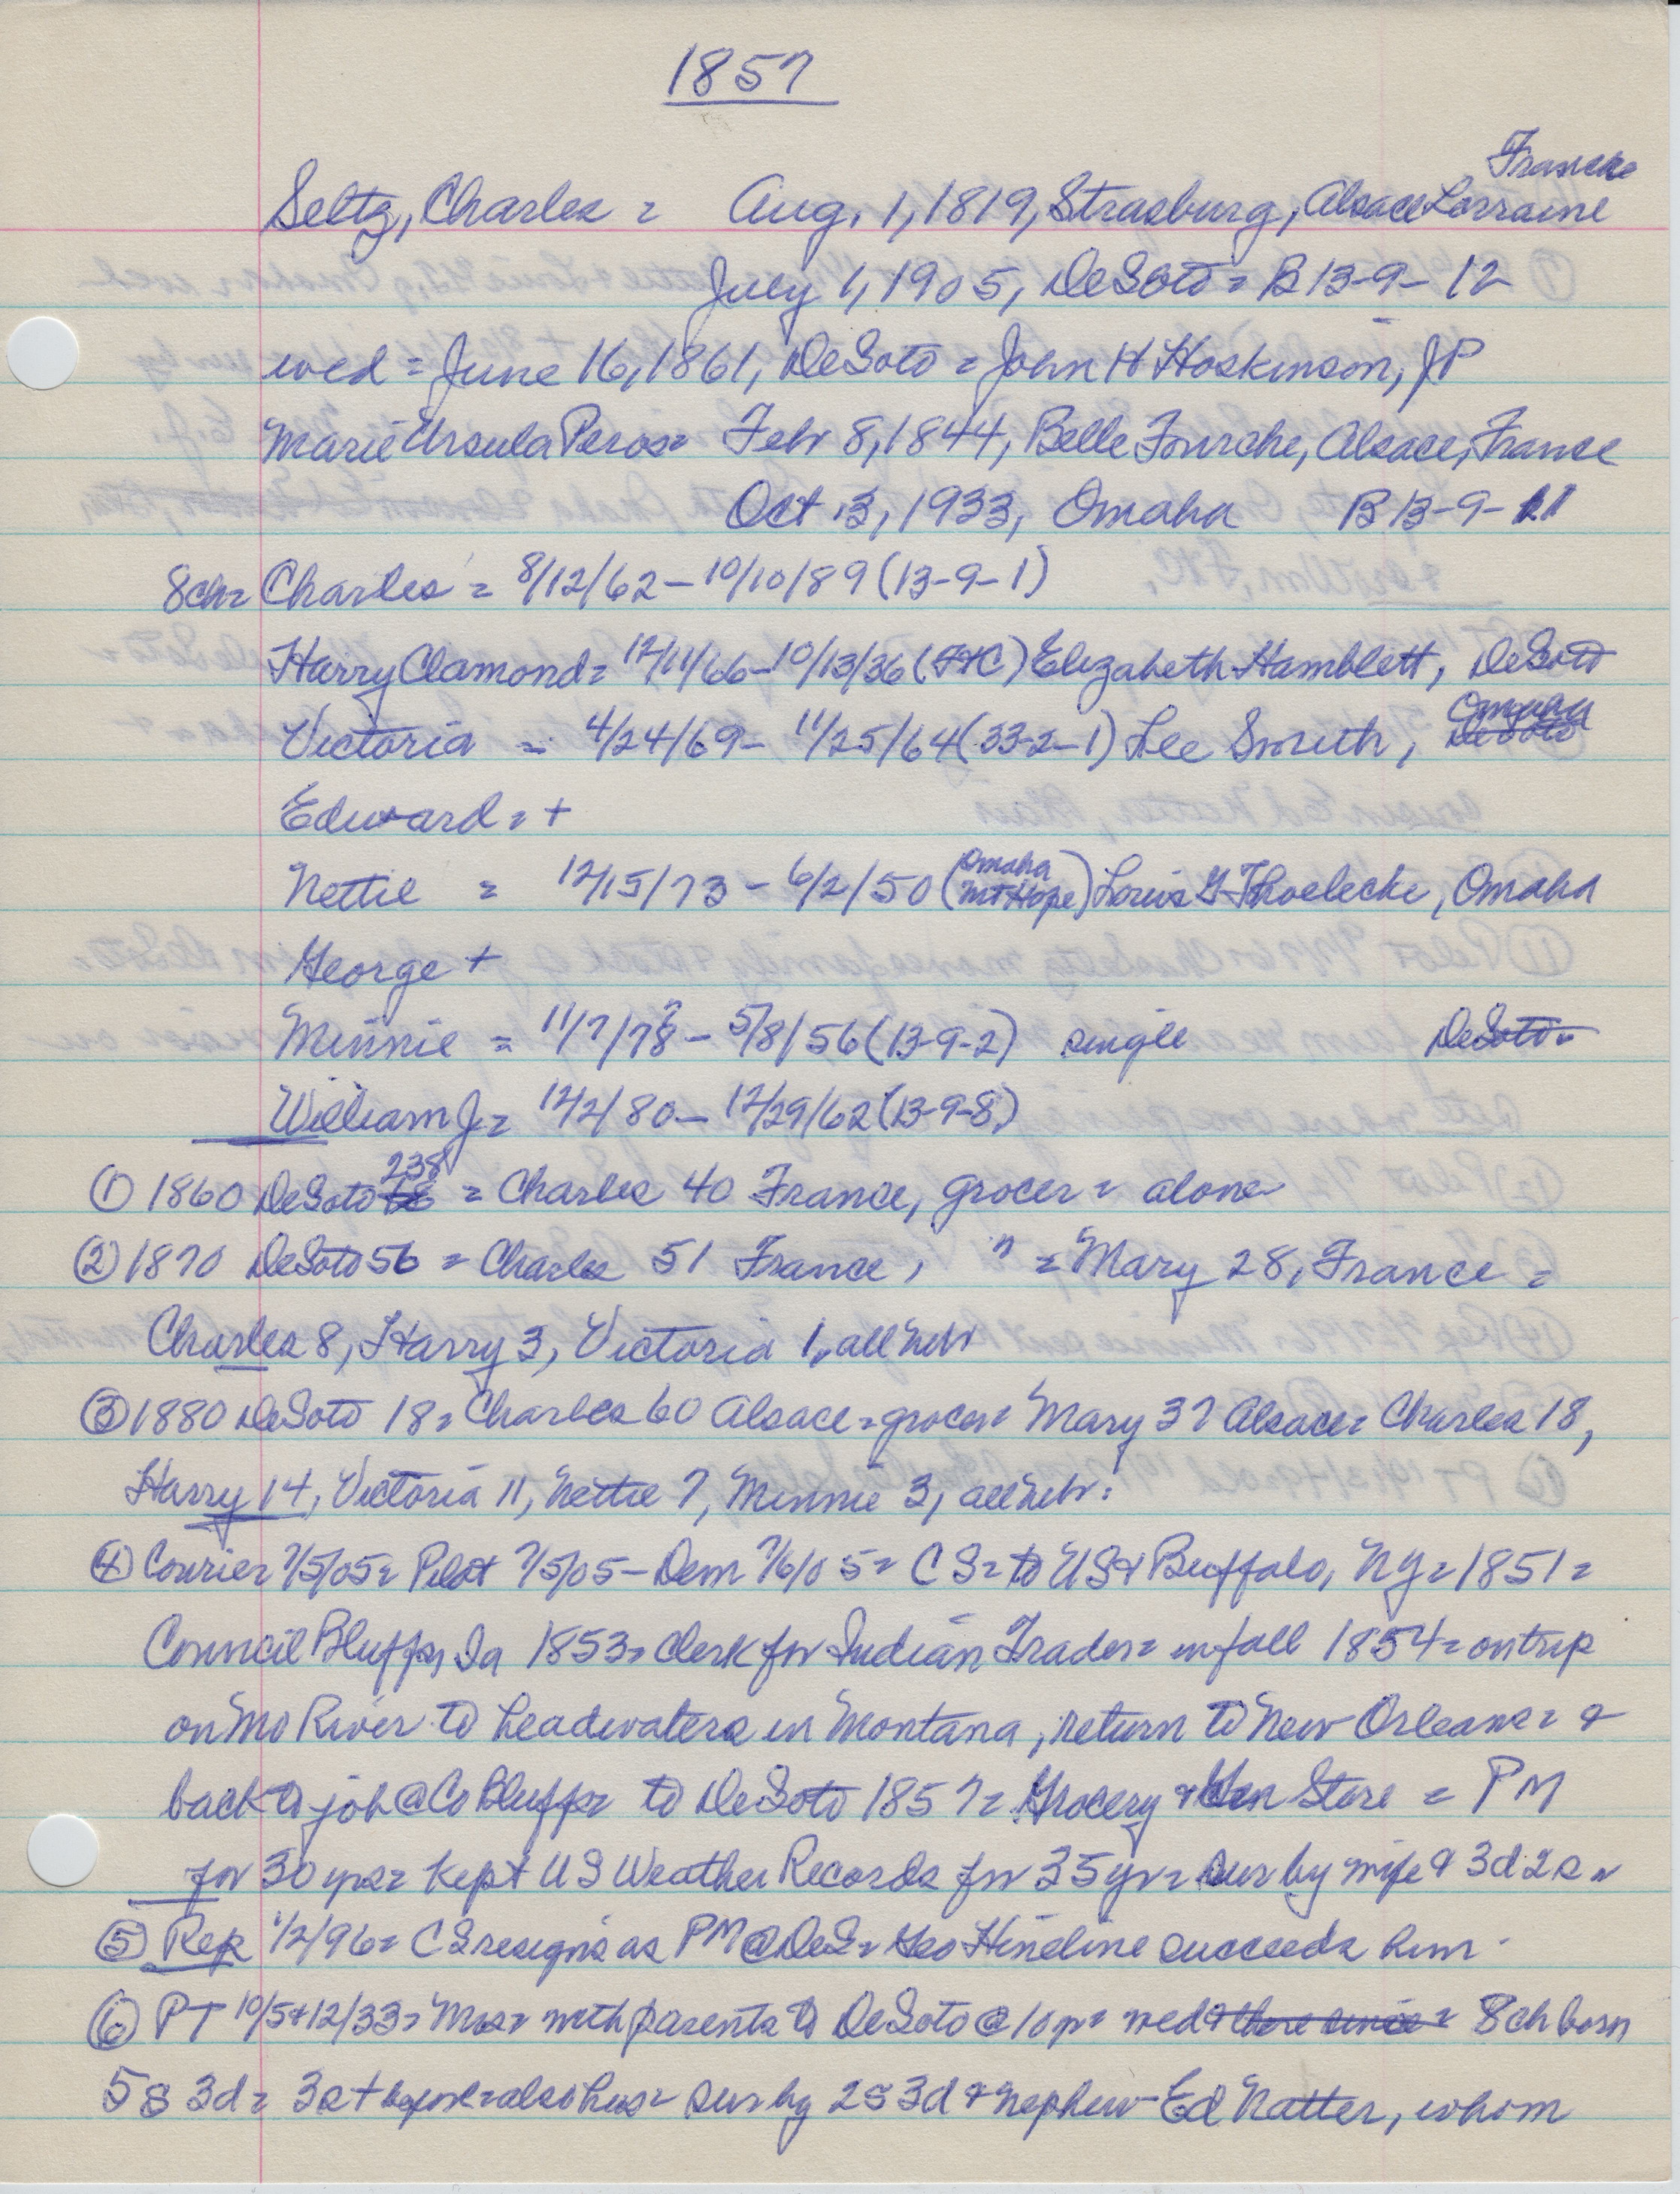 1857
France
Seltz, Charles = Aug. 1, 1819, Strasburg, Alsace Lorraine
July 1, 1905, DeSoto = B 13-9-12
wed = June 16, 1861, DeSoto = John H Hoskinson, JP
Marie Ursula Peros = Febr 8, 1844, Belle Fourche, Alsace, France
Oct 3, 1933, Omaha B 13-9-11
8ch = Charles = 8/12/62 - 10/10/89 (13-9-1)
Harry Clamond = 12/11/66 - 10/13/36 (FtC) Elizabeth Hamblett, DeSoto
Victoria = 4/24/69 - 11/25/64 (33-2-1) Lee Smith, DeSoto Omaha
Edward = +
Nettie = 12/15/73 - 6/2/50 (Omaha Mt Hope) Louis G Thoelecke, Omaha
George +
Minnie = 11/7/78 - 5/8/56 (13-9-2) single DeSoto
William J = 12/2/80 - 12/29/62 (13-9-8)
① 1860 DeSoto 238 = Charles 40 France, grocer = alone
② 1870 DeSoto 56 = Charles 51 France, " = Mary 28, France =
Charles 8, Harry 3, Victoria 1, all Nebr
③ 1880 DeSoto 18 = Charles 60 Alsace = grocer = Mary 37 Alsace = Charles 18,
Harry 14, Victoria 11, Nettie 7, Minnie 3, all Nebr.
④ Courier 7/5/05 = Pilot 7/5/05 - Dem 7/6/05 = CS = to US & Buffalo, NY = 1851 =
Council Bluffs, Ia 1853 = clerk for Indian Trader = in fall 1854 = on trip
on Mo River to headwaters in Montana, return to New Orleans = &
back to job @ Co Bluffs = to DeSoto 1857 = Grocery & Gen Store = PM
for 30 yrs = kept US Weather Records for 35 yr = sur by wife & 3d 2s =
⑤ Rep 1/2/96 = CS resigns as PM @ DeS = Geo Hineline succeeds him.
⑥ PT 10/5 & 12/33 = Mrs = with parents to DeSoto @ 10 yr = wed & there since = 8 ch born
5s 3d = 3s + before = also hus = sur by 2s 3d & nephew - Ed Natter, whom